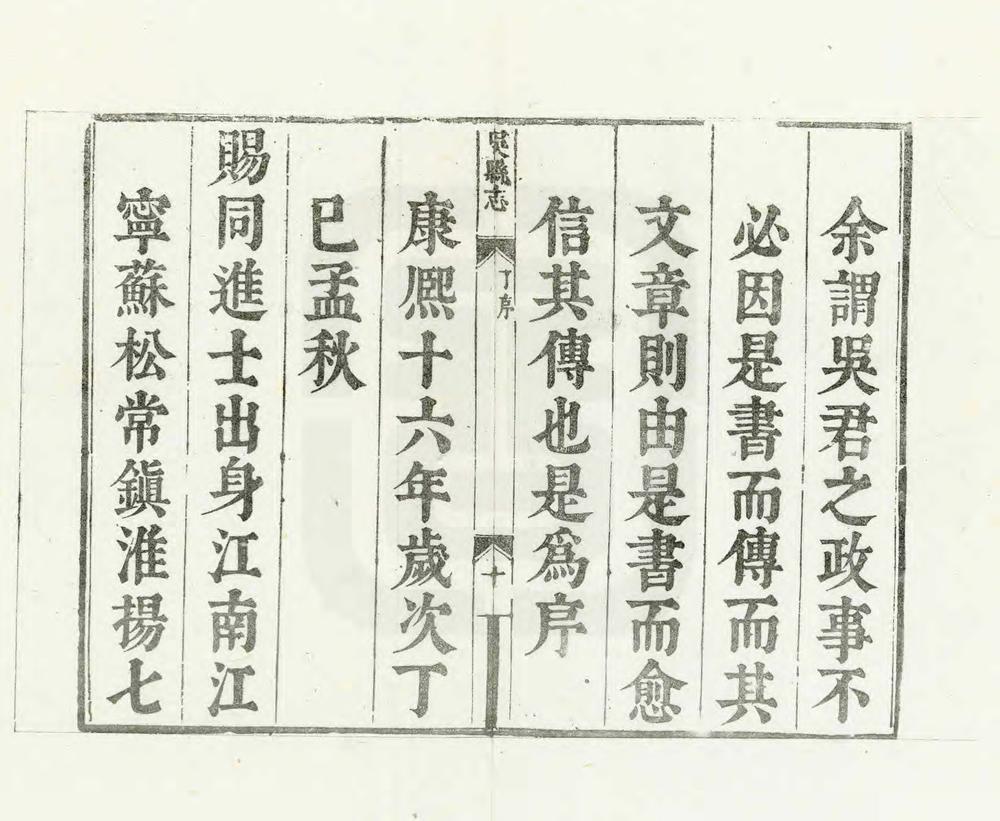 余謂吳君之政事不
必因是書而傳而其
文章則由是書而愈
信其傳也是爲序
吳縣志
丁序
十
康熈十六年歲次丁
巳孟秋
賜同進士出身江南江
寧蘇松常鎭淮揚七